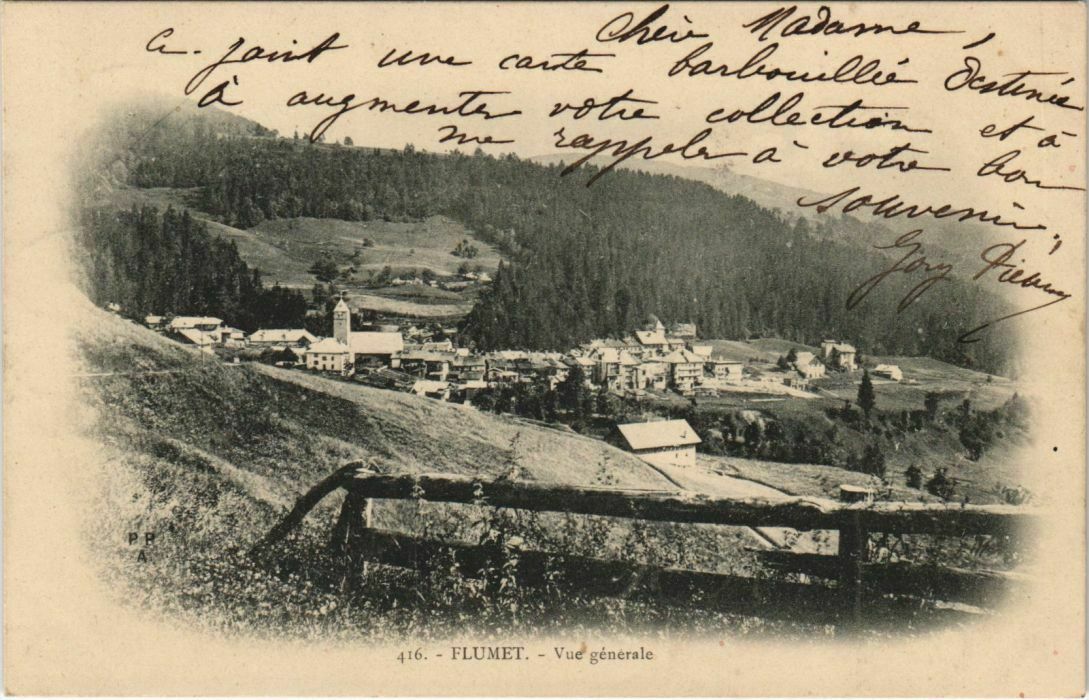 Chère Madame,
Ci-joint une carte barbouillée destinée
à augmenter votre collection et à
me rappeler à votre bon
souvenir,
PP
A
416. - FLUMET. - Vue générale